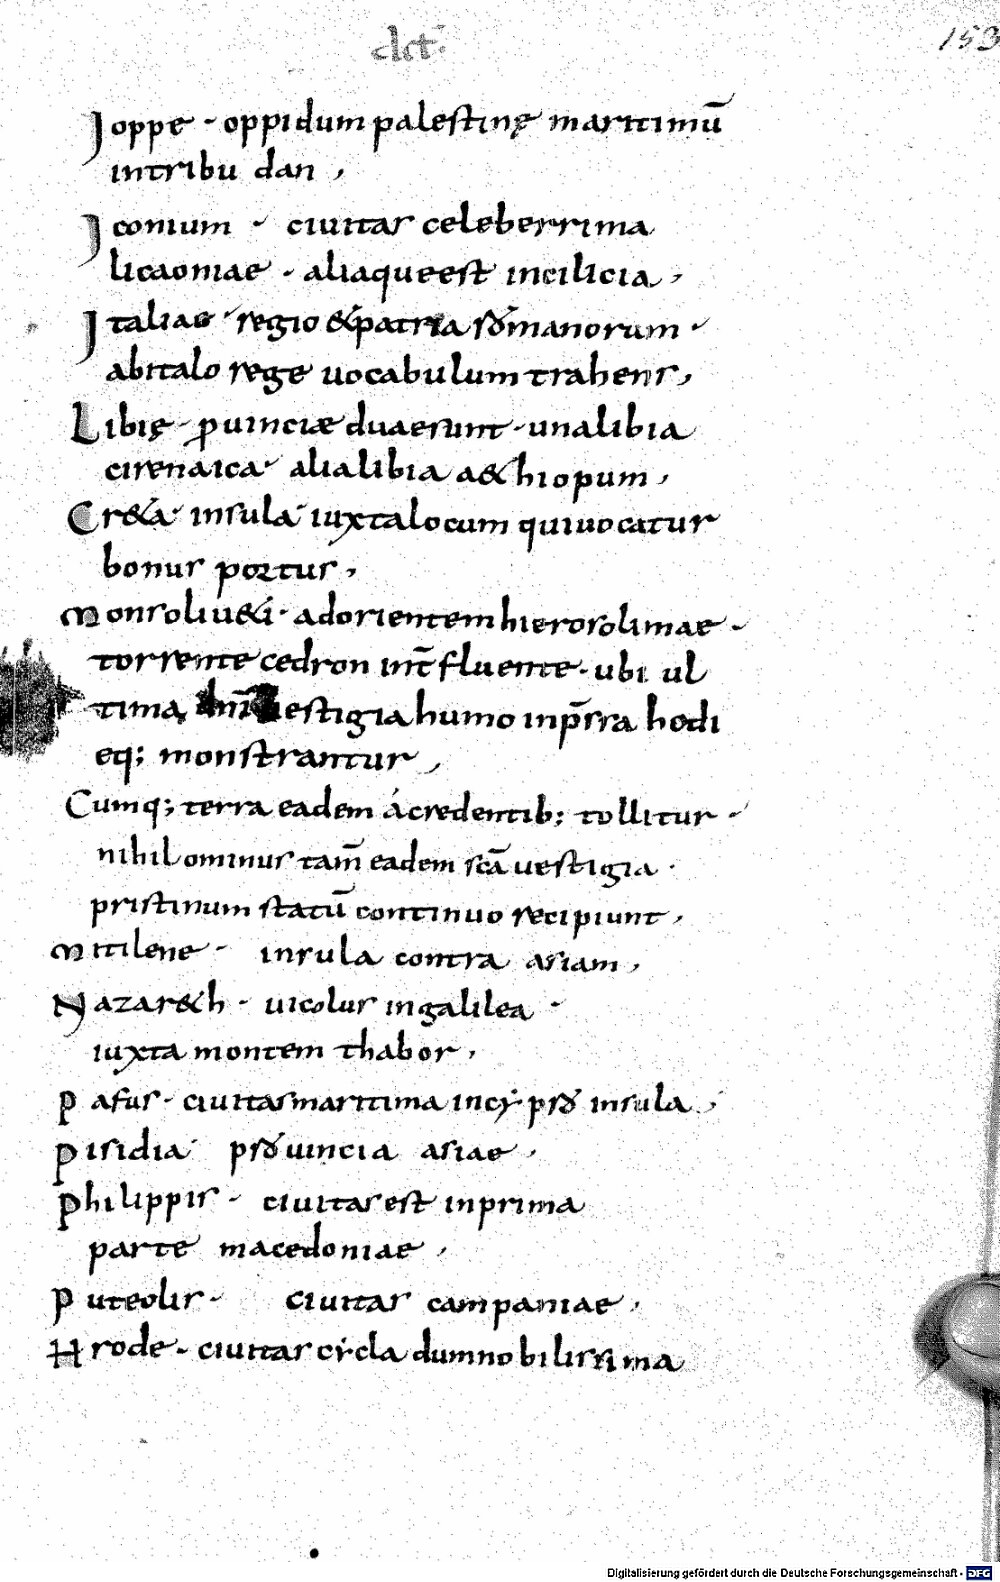 act̄.
153
Joppe - oppidum palestinę maritimū
intribu dan ,
Jconium - ciuitas celeberrima
licaoniae . aliaqueest incilicia ,
Jtaliae regio &patria romanorum .
abitalo rege uocabulum trahens,
Libię . ꝓuinciæ duaesunt . unalibia
cirenaica . alialibia a&hiopum ,
Cr&a . insula iuxtalocum quiuocatur
bonus portus ,
Monsoliu&i . adorientem hierosolimae .
torrente cedron int̄ fluente . ubi ul
tima dn̄i uestigia humo inp̄ssa hodi
eq; monstrantur ,
Cumq; terra eadem ácredentib; tollitur .
nihilominus tam̄ eadem scā uestigia .
pristinum statū continuo recipiunt ,
Mitilene . insula contra asiam ,
Nazar&h . uicolus ingalilea
iuxta montem thabor ,
Pafus . ciuitasmaritima incẏpro insula .
Pisidia prouincia asiae .
Philippis . ciuitasest inprima
parte macedoniae ,
Puteolis . ciuitas campaniae ,
Hrode . ciuitas cẏcladumnobilissima
Digitalisierung gefördert durch die Deutsche Forschungsgemeinschaft - DFG